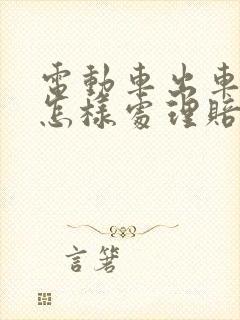 電動車出車
怎樣處理賠
言箸